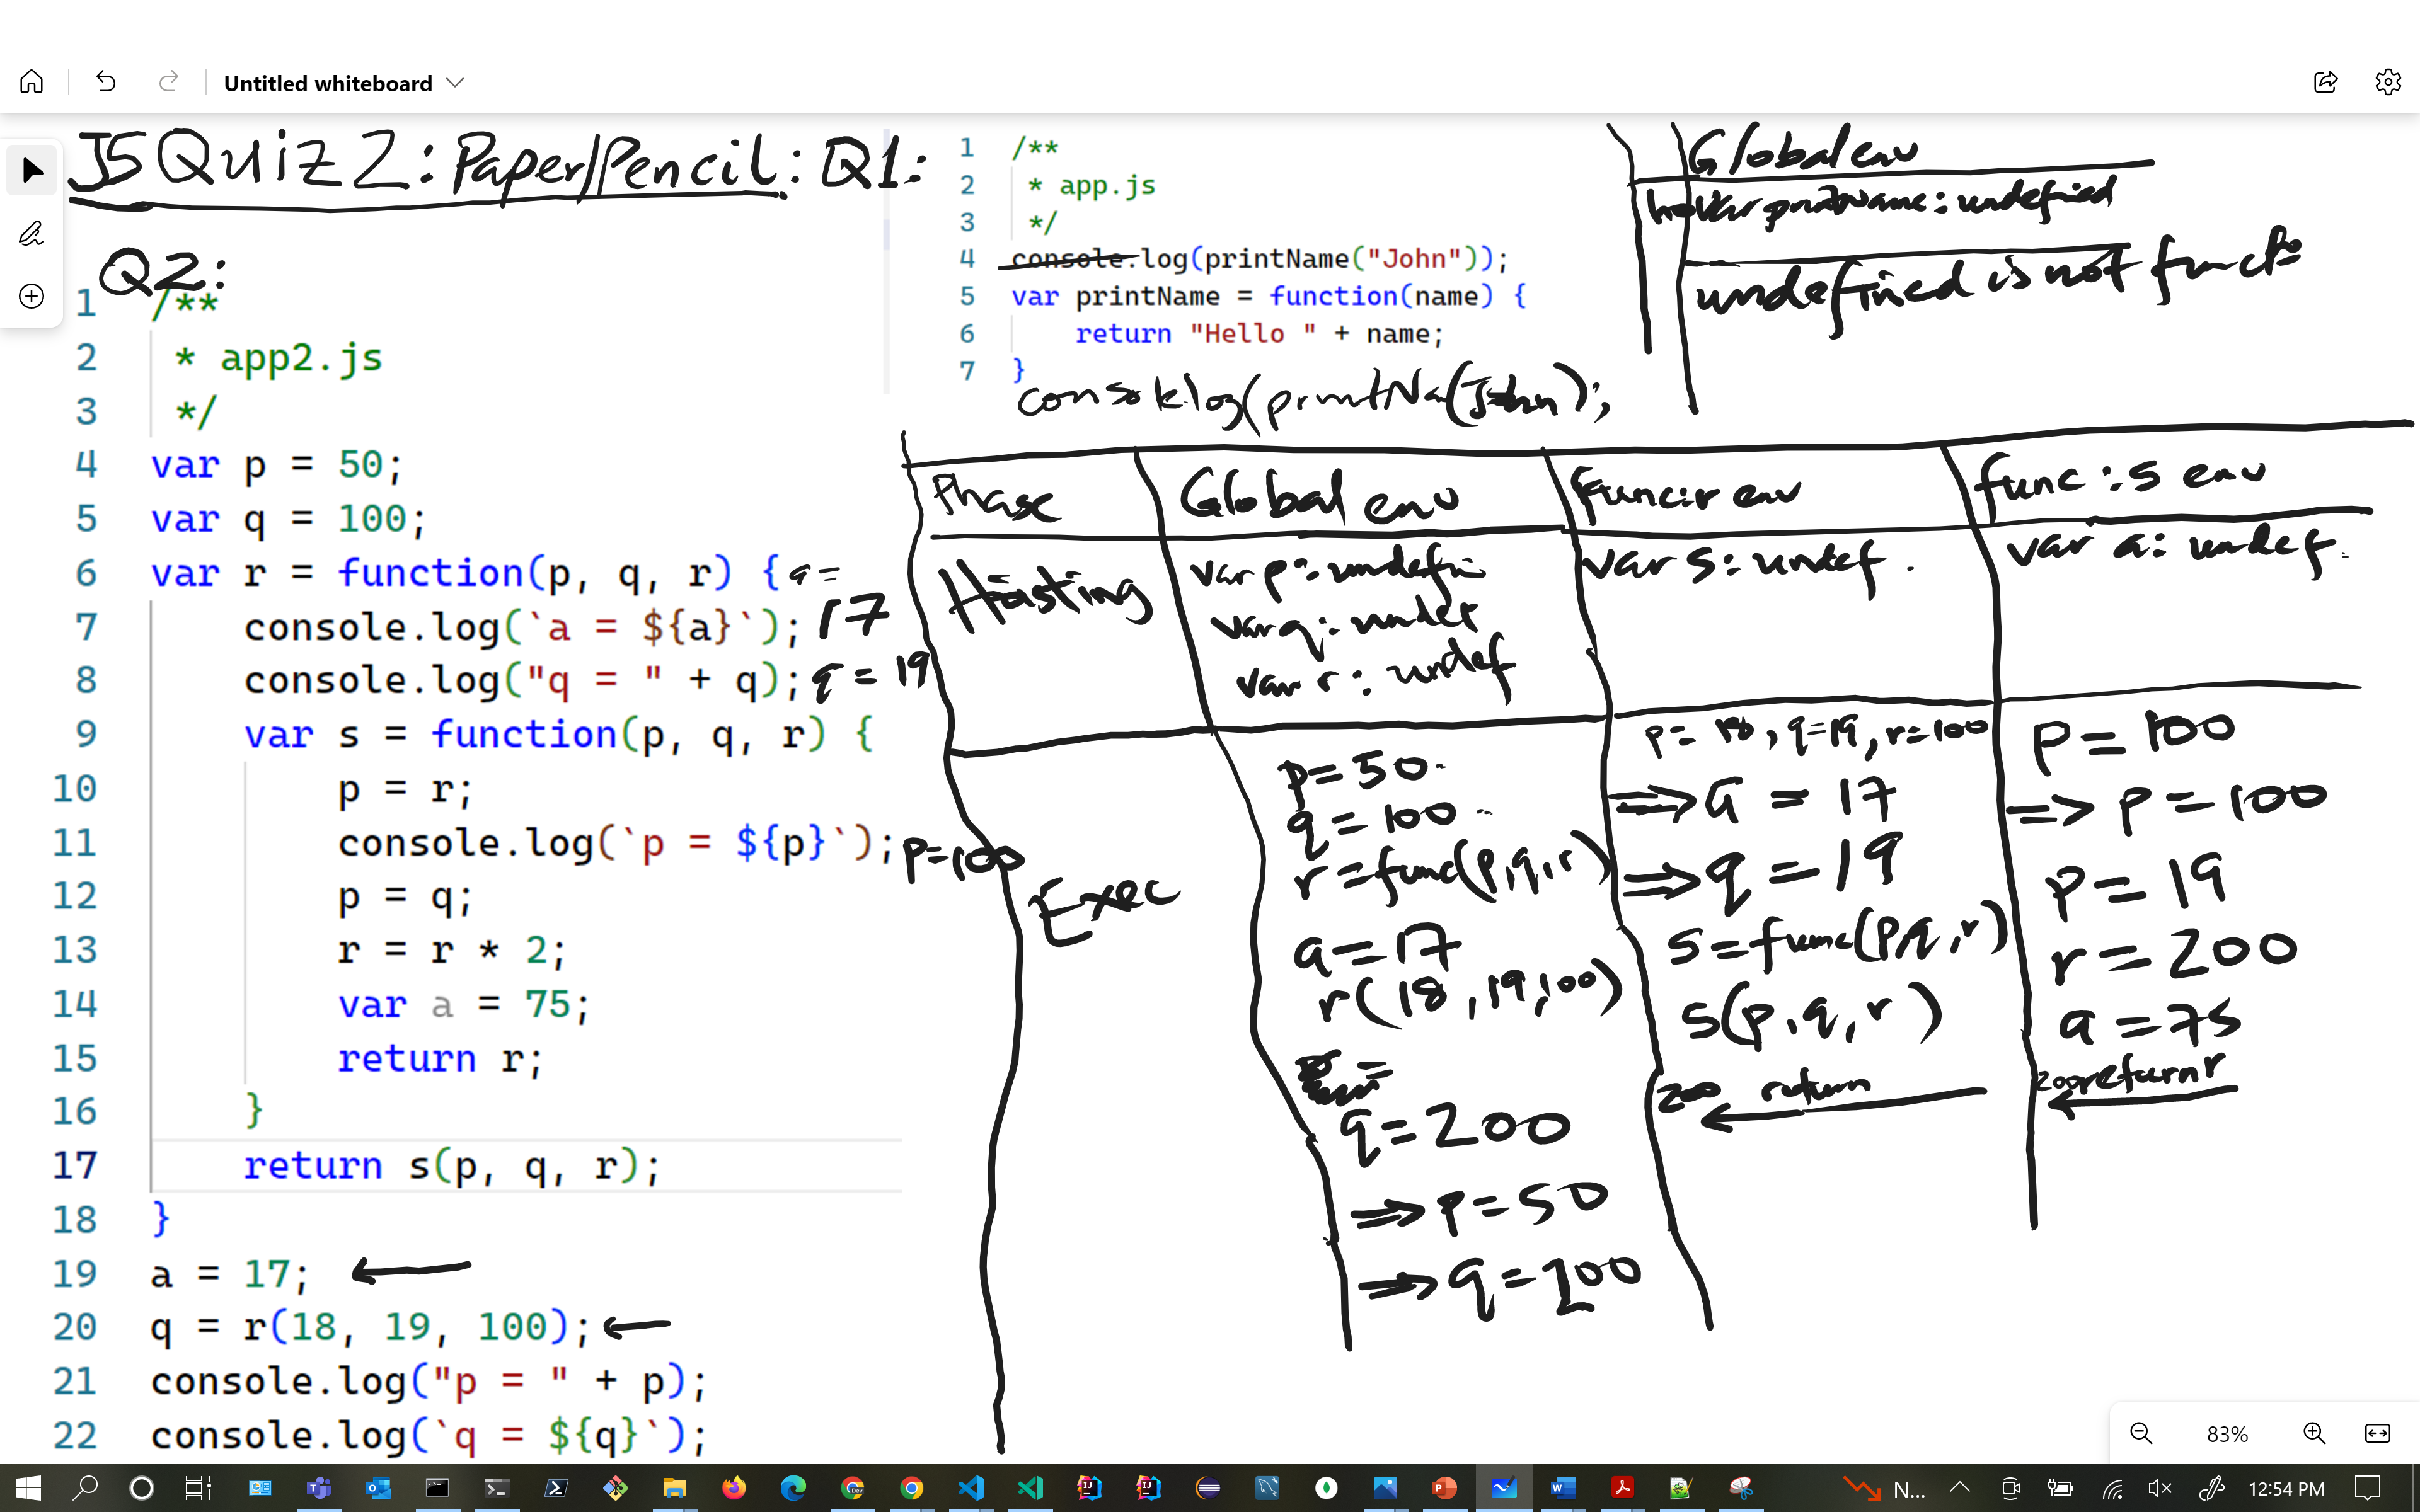 Untitled whiteboard
JS Quiz 2: Paper/Pencil: Q1:
1 /**
2 * app.js
3 */
4 console.log(printName("John"));
5 var printName = function(name) {
6 return "Hello " + name;
7 }
console.log(printNa(John);
Global env
var printName: undefined
undefined is not funct
Q2:
1 /**
2 * app2.js
3 */
4 var p = 50;
5 var q = 100;
6 var r = function(p, q, r) { a =
7 console.log(`a = ${a}`); 17
8 console.log("q = " + q); q = 19
9 var s = function(p, q, r) {
10 p = r;
11 console.log(`p = ${p}`); P=100
12 p = q;
13 r = r * 2;
14 var a = 75;
15 return r;
16 }
17 return s(p, q, r);
18 }
19 a = 17; ←
20 q = r(18, 19, 100); ←
21 console.log("p = " + p);
22 console.log(`q = ${q}`);
Phase
Hoisting
Exec
Global env
var p: undefin
var q: undef
var r: undef
p=50
q=100
r=func(p,q,r)
a=17
r(18,19,100)
q=200
=>p=50
=>q=200
Func:r env
var s: undef.
p=18, q=19, r=100
=>a = 17
=>q = 19
s=func(p,q,r)
s(p,q,r)
200 return
←
func:s env
var a: undef.
P=100
=> p=100
P=19
r=200
a=75
200 return r
←
83%
N...
12:54 PM